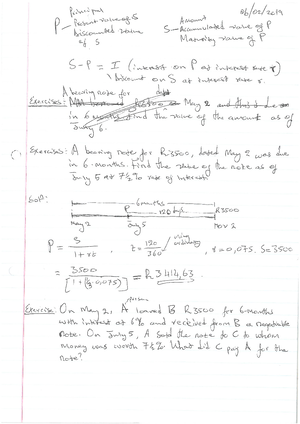 06/02/2019
Principal
P - Present value of S
Discounted value
of S
Amount
S - Accumulated value of P
Maturity value of P
S - P = I (interest on P at interest rate r)
Discount on S at interest rate r.
A bearing note for
Exercises: May 2 and due
in 6 months. Find the value of the amount as of
July 6.
Exercises: A bearing note for R3500, dated May 2 was due
in 6-months. Find the value of the note as of
July 5 at 7½% rate of interest.
Soln:
6 months
P 120 days R3500
May 2 July 5 Nov 2
P = S / 1 + rt , t = 120/360 / using ordinary , r = 0,075, S = 3500
= 3500 / [1 + (⅓·0,075)] = R3 414,63
person
Exercise: On May 2, A loaned B R3500 for 6-months
with interest at 6% and received from B a negotiable
note. On July 5, A sold the note to C to whom
money was worth 7½%. What did C pay A for the
note?